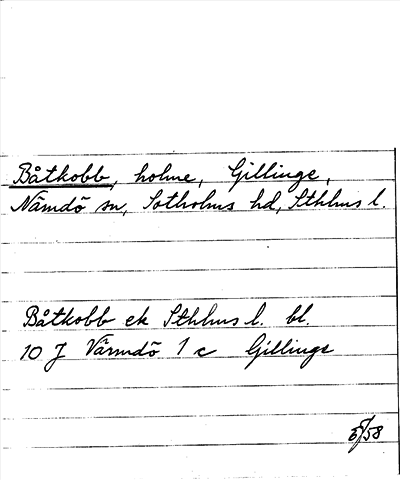 Båtkobb, holme, Gillinge,
Nämdö sn, Sotholms hd, Sthlms l.
Båtkobb ek Sthlms l. bl.
10 J Värmdö 1 c Gillinge
5/58